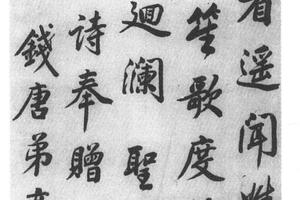 看遥闻
笙歌度
迴澜聖
诗奉贈
錢唐弟